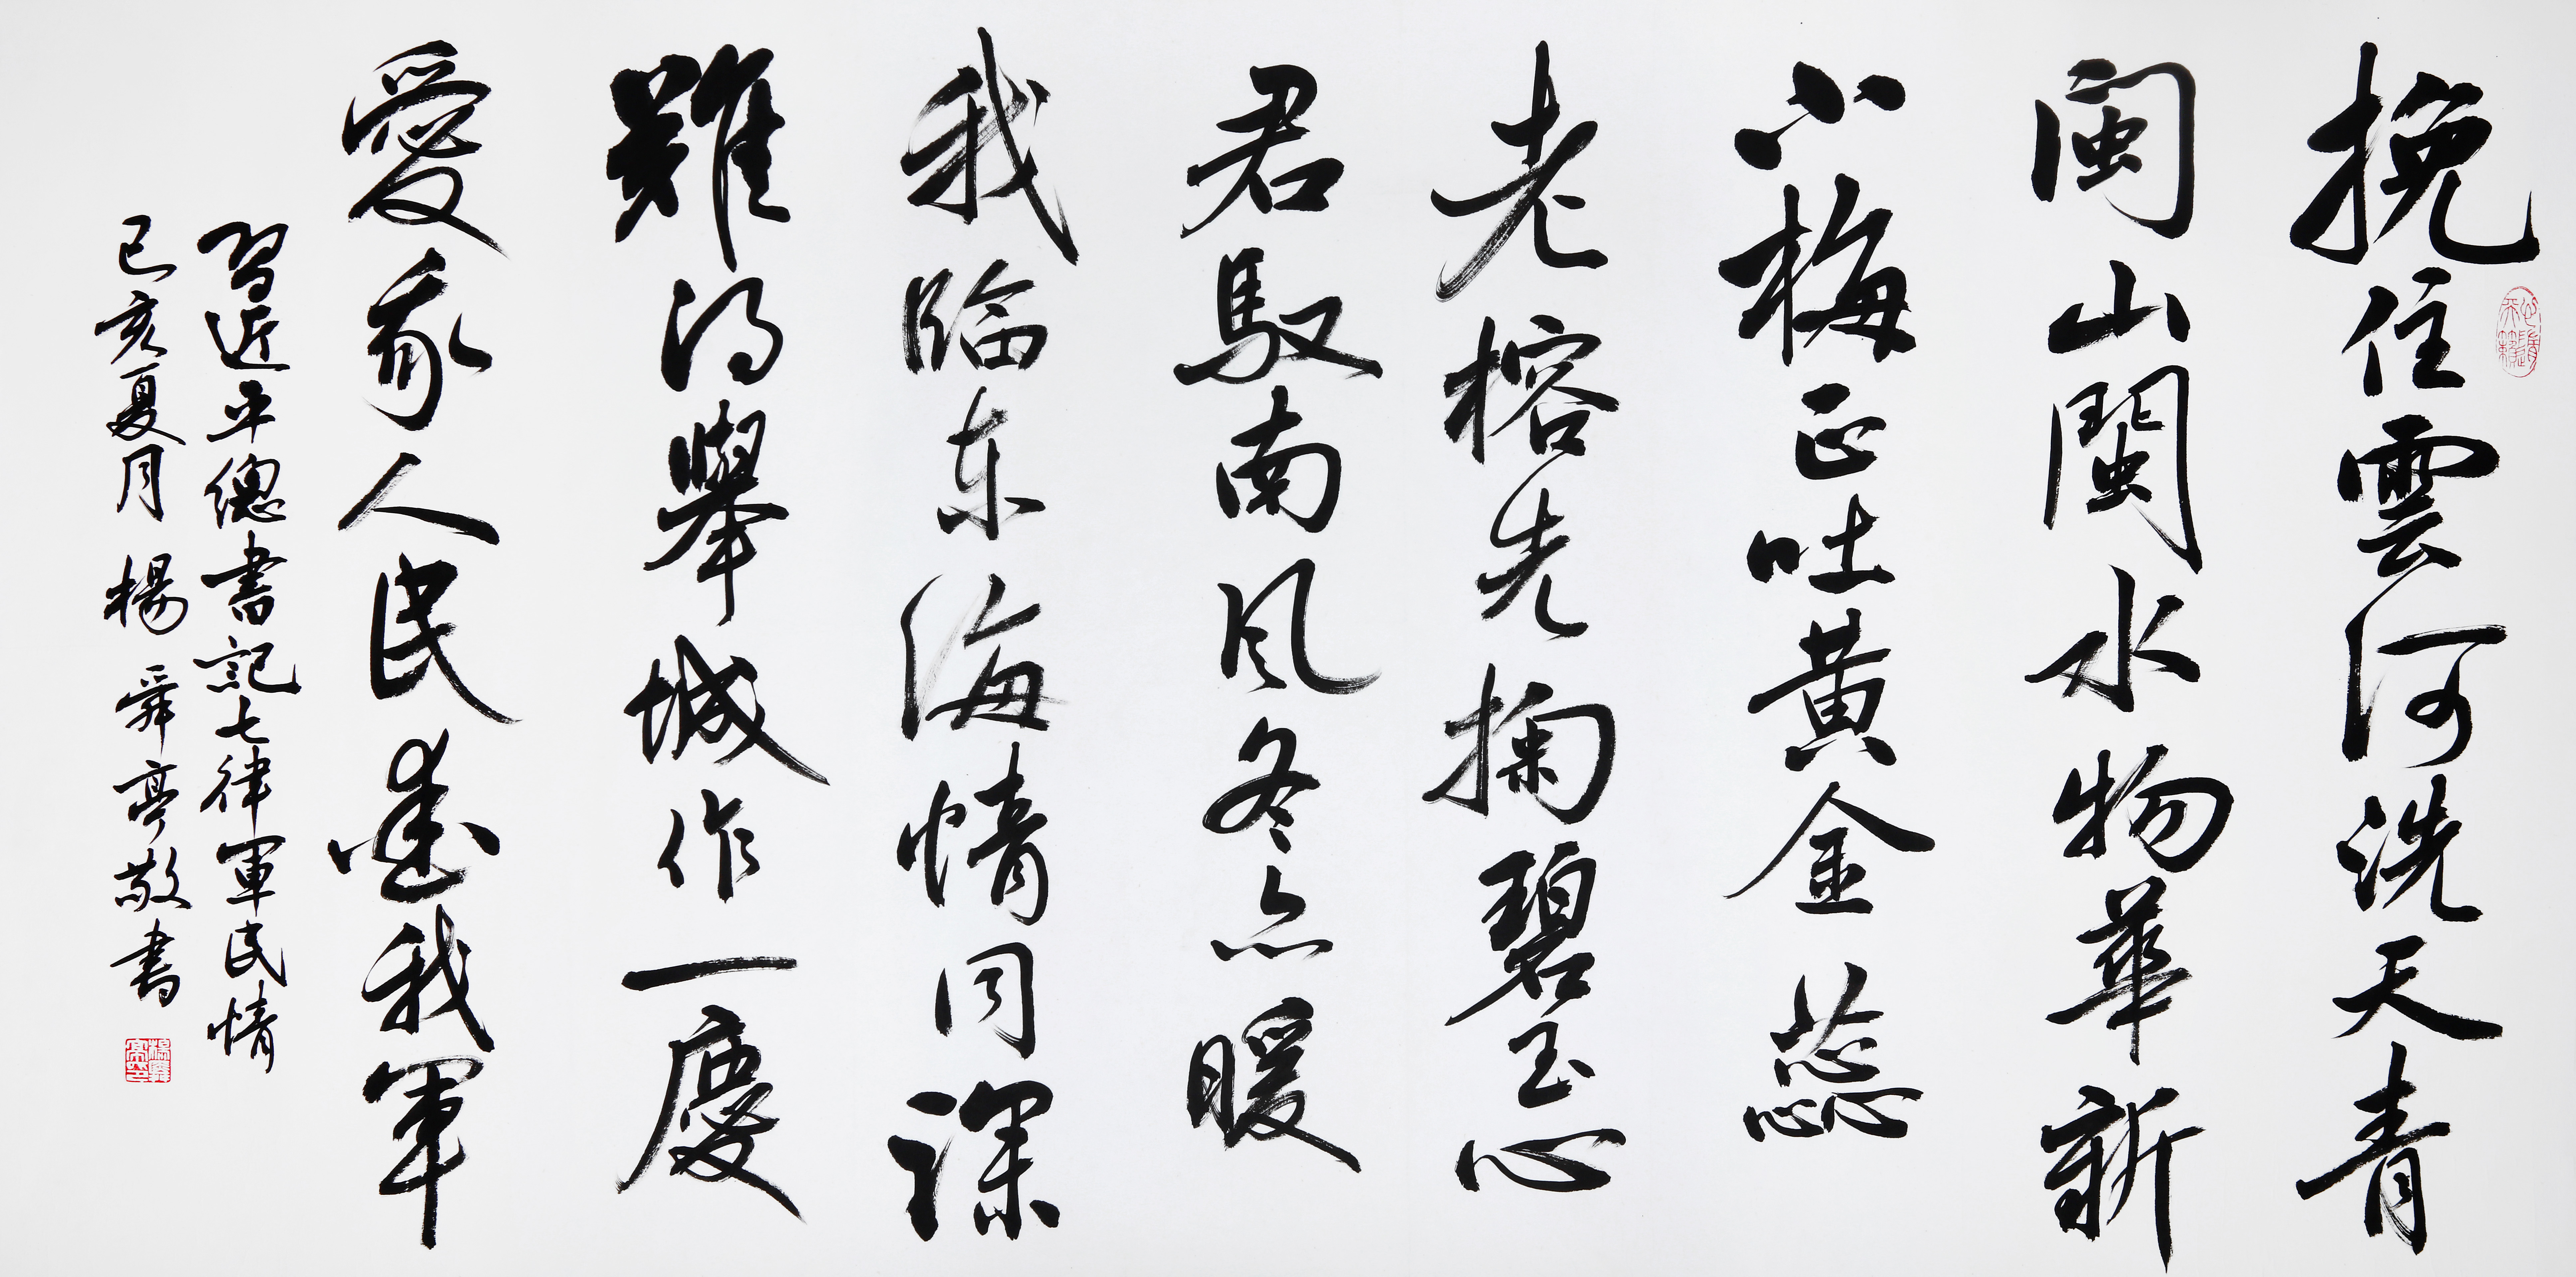 挽住雲河洗天青
闽山閩水物華新
小梅正吐黄金蕊
老榕先掬碧玉心
君馭南风冬亦暖
我临东海情同深
難得舉城作一慶
愛我人民愛我軍
習近平總書記七律軍民情
己亥夏月 楊舜亭敬書
楊舜亭印